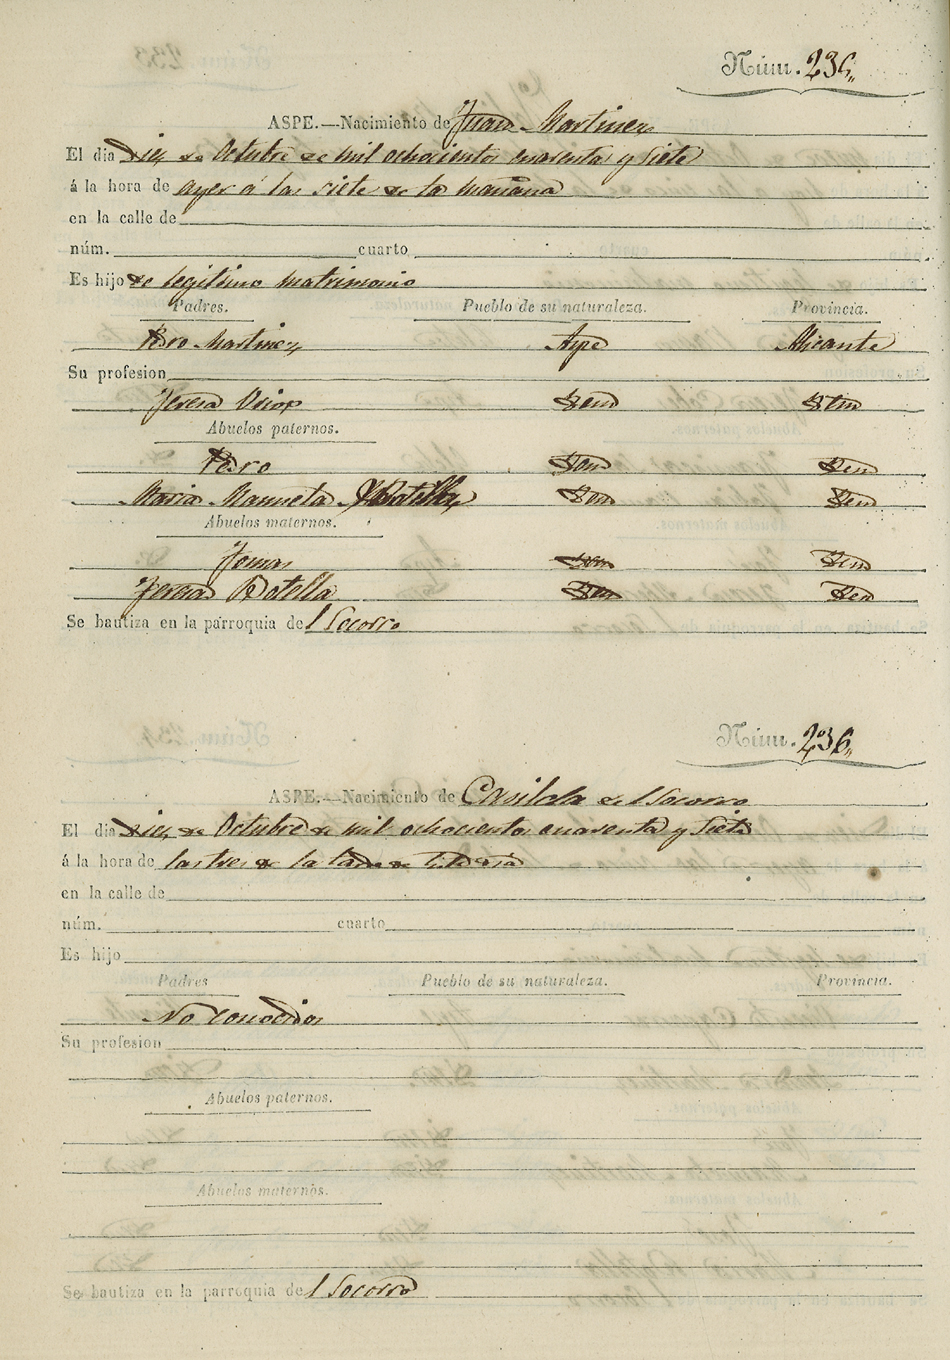 Núm. 235
ASPE.—Nacimiento de Juan Martinez
El dia Diez de Octubre de mil ochocientos cuarenta y siete
á la hora de ayer á las siete de la mañana
en la calle de
núm. cuarto
Es hijo de legitimo matrimonio
Padres. Pueblo de su naturaleza. Provincia.
Pedro Martinez Aspe Alicante
Su profesion
Teresa Idem Idem
Abuelos paternos.
Pedro Idem Idem
Maria Manuela Botella Idem Idem
Abuelos maternos.
Tomas Idem Idem
Teresa Botella Idem Idem
Se bautiza en la parroquia del Socorro
Núm. 236
ASPE.—Nacimiento de Casilda del Socorro
El dia Diez de Octubre de mil ochocientos cuarenta y siete
á la hora de las tres de la tarde de
en la calle de
núm. cuarto
Es hijo
Padres Pueblo de su naturaleza. Provincia.
No conocidos
Su profesion
Abuelos paternos.
Abuelos maternos.
Se bautiza en la parroquia del Socorro